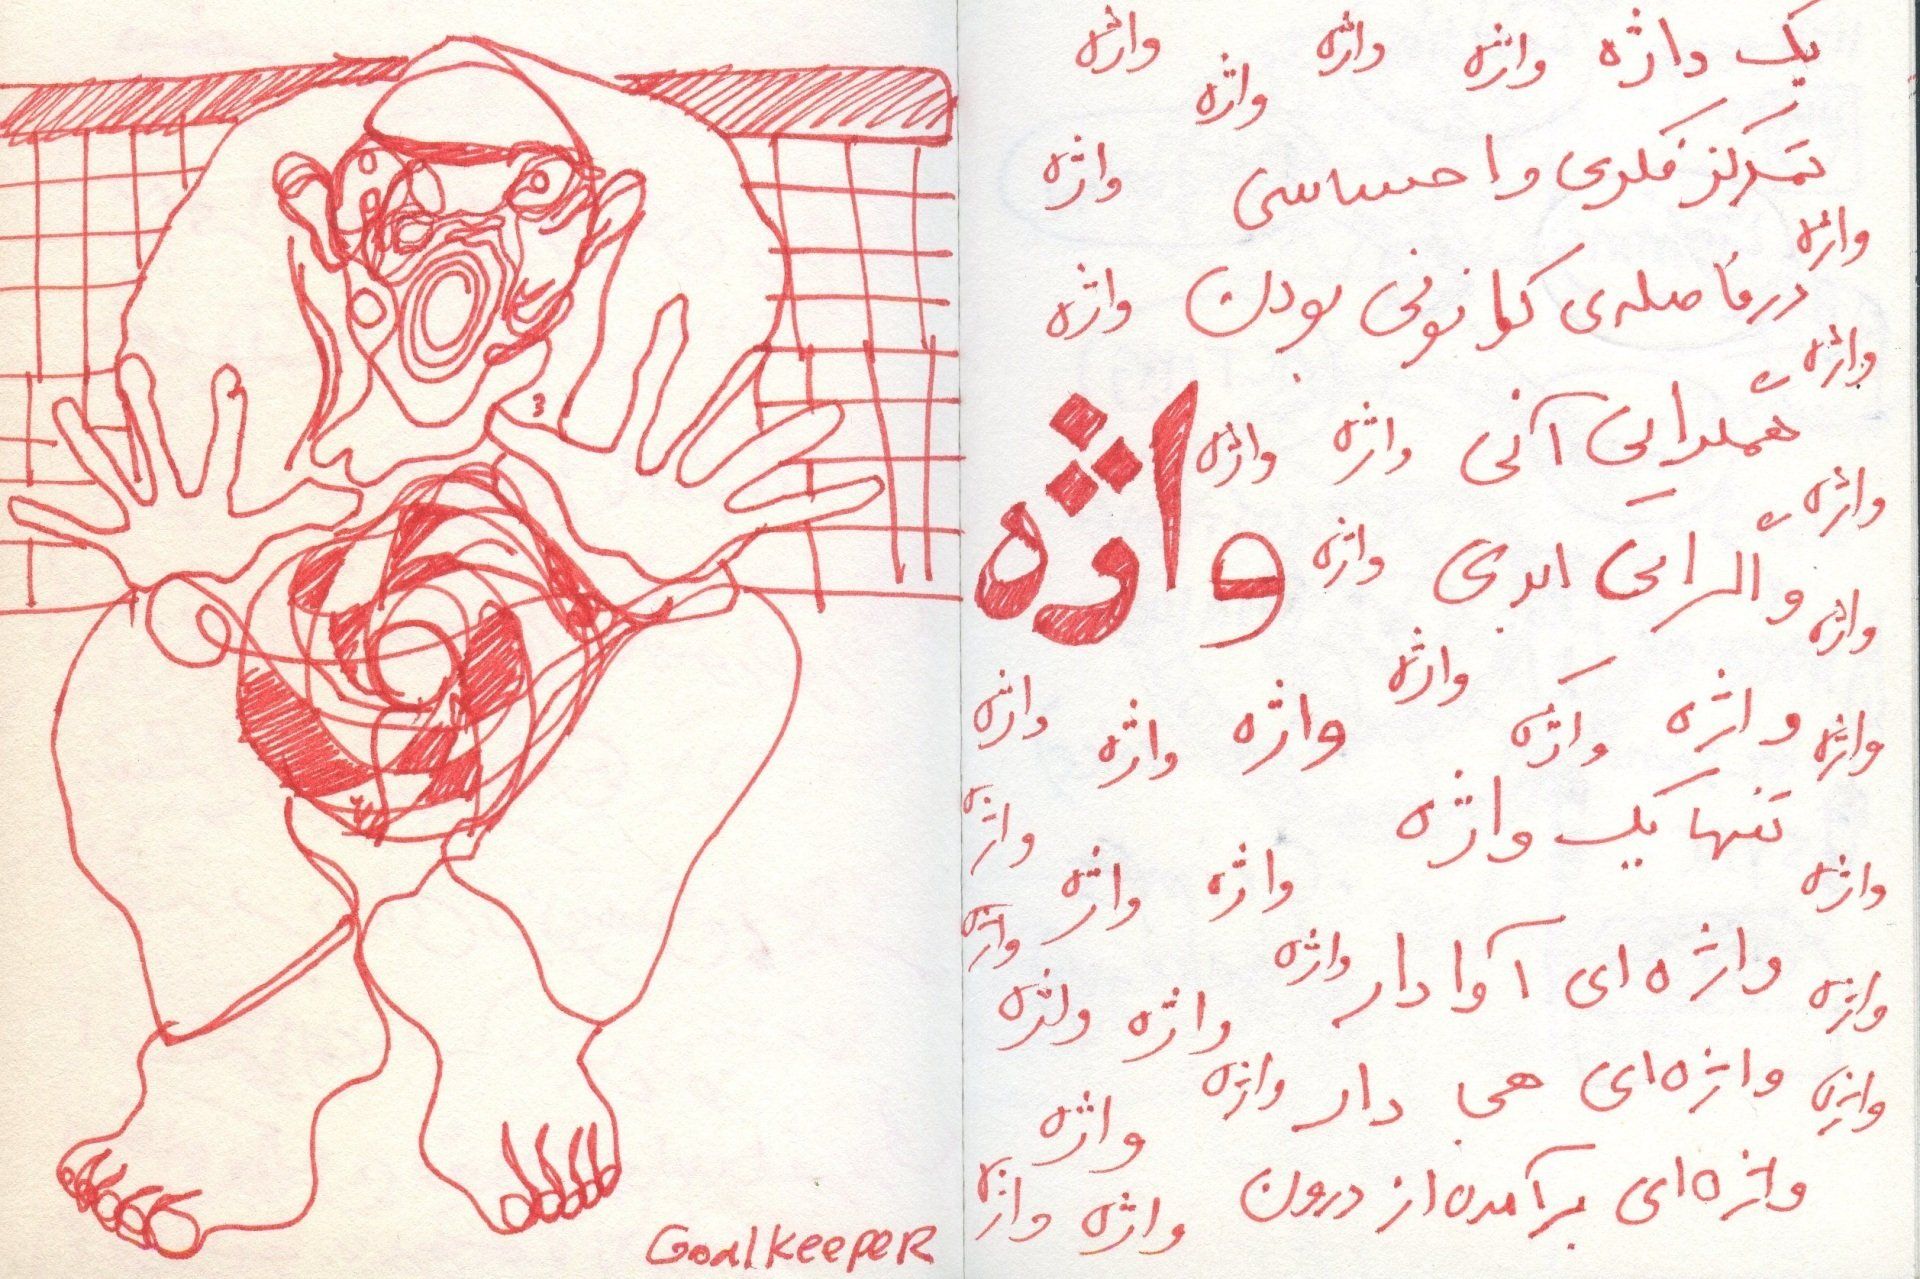 Goalkeeper
یک واژه واژه واژه واژه واژه
تمرکز فکری و احساسی واژه
واژه
در فاصله‌ی کانونی بودن واژه
واژه
همگرایی آنی واژه واژه
واژه
واژه
واگرایی ابدی واژه
واژه
واژه
واژه واژه واژه واژه واژه واژه
تنها یک واژه
واژه
واژه واژه واژه
واژه
واژه‌ای آوا دار واژه
واژه
واژه واژه واژه
واژه‌ای هجی دار واژه
واژه واژه
واژه‌ای برآمده از درون واژه واژه